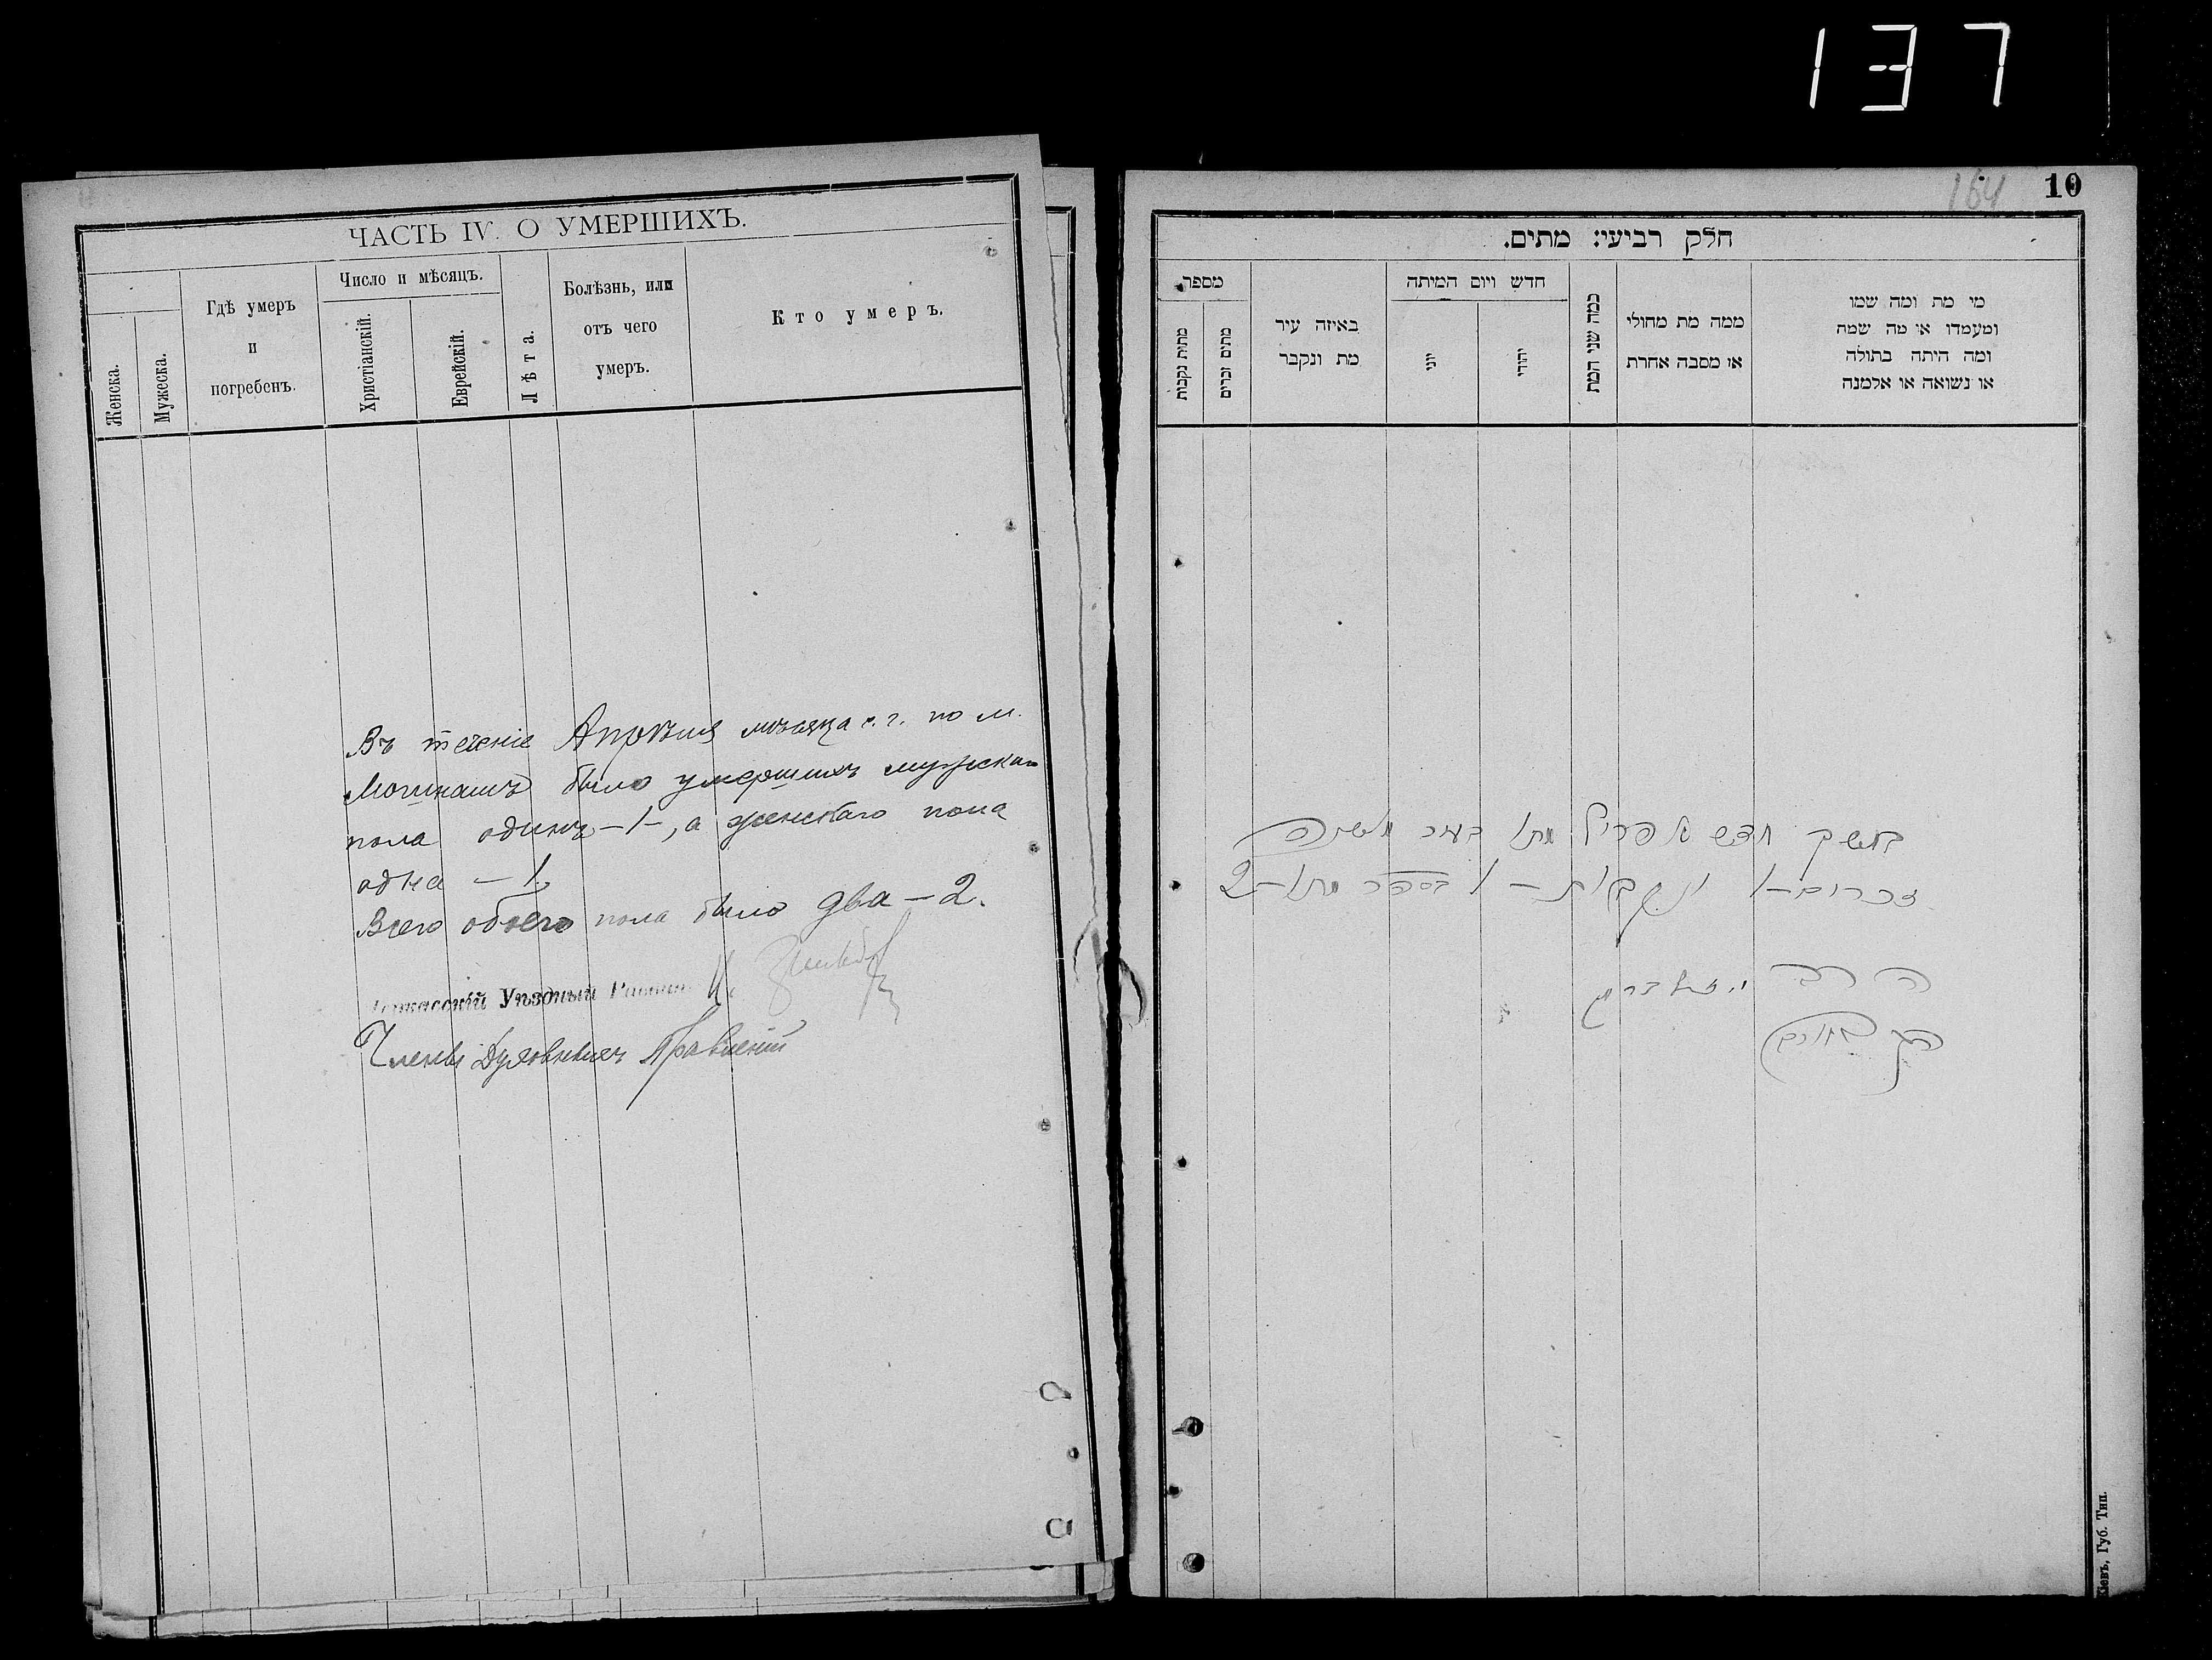 137
ЧАСТЬ IV. О УМЕРШИХЪ.
Женска.
Мужеска.
Гдѣ умеръ
и
погребенъ.
Число и мѣсяцъ.
Христіанскій.
Еврейскій.
Лѣта.
Болѣзнь, или
отъ чего
умеръ.
Кто умеръ.
Въ теченіе Апрѣля мѣсяца с. г. по м.
было умершихъ мужскаго
пола одинъ -1-, а женскаго пола
одна - 1,
Всего обоего пола было два - 2.
Уѣздный
Члены Духовныхъ Правленій
164
10
חלק רביעי: מתים.
מספר
מתות נקבות
מתים זכרים
באיזה עיר
מת ונקבר
חדש ויום המיתה
יוני
יהודי
כמה שני המת
ממה מת מחולי
או מסבה אחרת
מי מת ומה שמו
ומעמדו או מה שמה
ומה היתה בתולה
או נשואה או אלמנה
במשך חדש אפריל מתו בעיר
זכרים - 1 ונקבות - 1 בספר מתו - 2
הרב
Кіевъ, Губ. Тип.